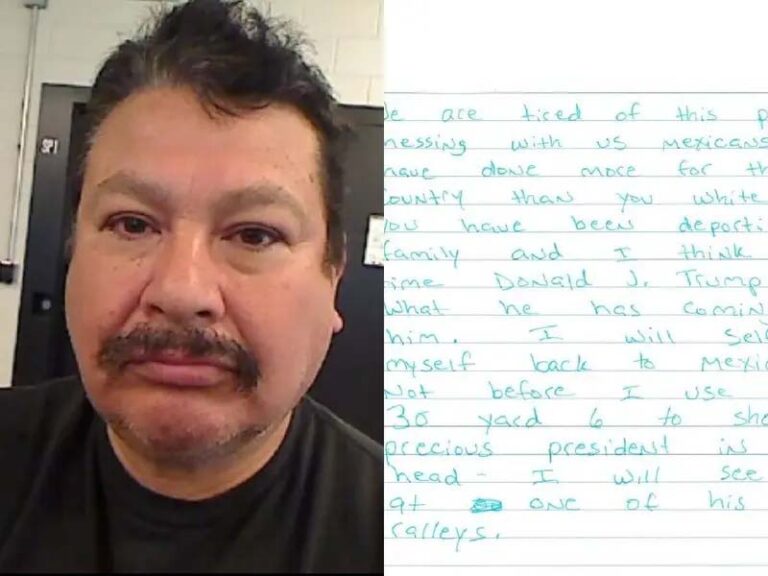 SPI
e are tired of this p
nessing with us Mexicans
have done more for th
ountry than you white
ou have been deporti
family and I think
ime Donald J. Trump
what he has comin
him. I will sel
myself back to Mexic
Not before I use
30 yard 6 to sho
precious president in
head - I will see
at one of his
ralleys.